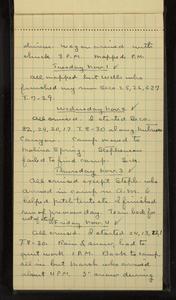 divine. Wagon arrived with
chuck 3 P.M. Mapped P.M.
Tuesday Nov. 1
All mapped but Wells who
finished my run Secs 25, 26, & 27
T. 7 - 29.
Wednesday Nov. 2
All arrived. I started Secs.
32, 29, 20, 17. T. 8-30 along
Canyon. Camp moved to
Spring. Stephenson
failed to find camp.
Thursday Nov. 3
All arrived except Steph. who
arrived in camp in A.M. &
helped patch tents etc. I finished
run of previous day. Team back for
Friday Nov. 4
All arrived. I started 24, 13,
T. 8-30. Rain & snow, had to
quit work 1 P.M. Back to camp
all in but Marsh who arrived
about 4 P.M. 3" snow during